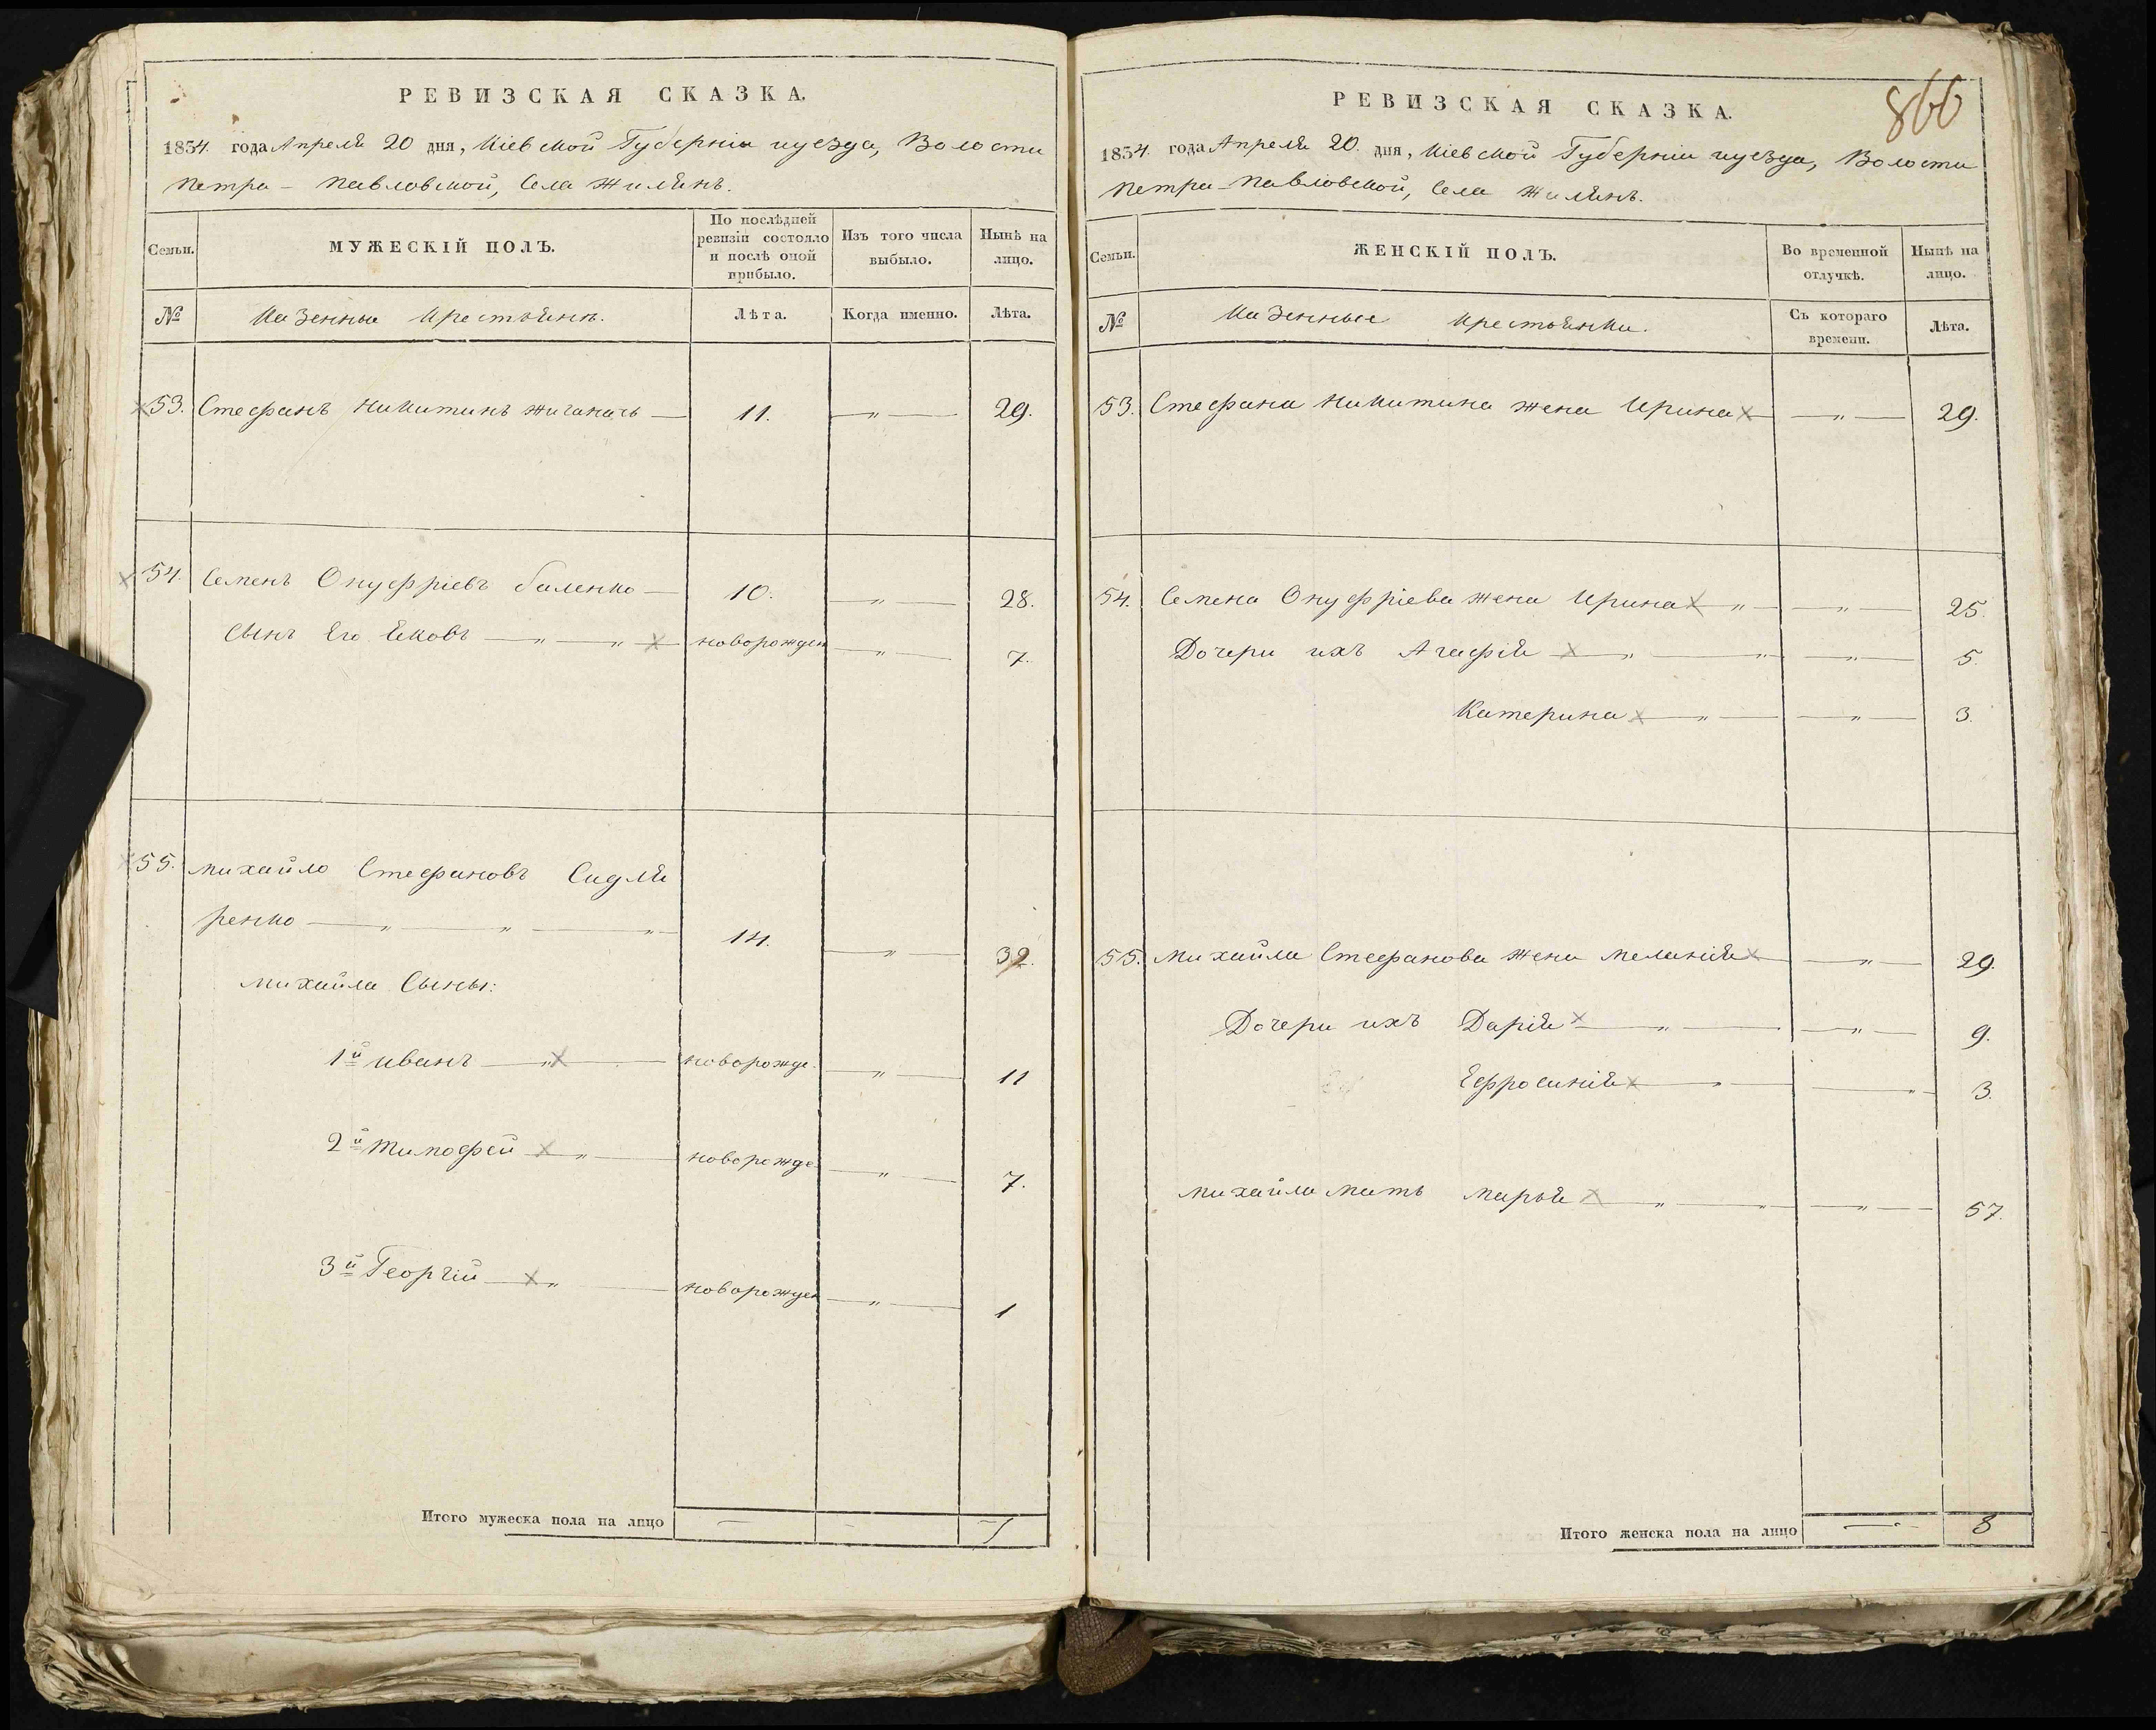 РЕВИЗСКАЯ СКАЗКА.
1854. года Апреля 20 дня, Кіевской Губерніи и уезда, Волости
Петро-Павловской, Села Жилянъ.
Семьи.
МУЖЕСКІЙ ПОЛЪ.
По послѣдней ревизіи состояло и послѣ оной прибыло.
Изъ того числа выбыло.
Нынѣ на лицо.
№
Казенные Крестьяне.
Лѣта.
Когда именно.
Лѣта.
53. Стефанъ Никитинъ — 11. — „ — 29.
54. Семенъ Онуфріевъ Баленко — 10. — „ — 28.
Сынъ Его Яковъ — „ — „ — новорожден — „ — 7.
55. Михайло Стефановъ Сидля
ренко — „ — „ — „ 14. — „ — 32.
Михайла Сыны:
1й Иванъ — „ — новорожде. — „ — 11
2й Тимофей — „ — новорожде. — „ — 7.
3й Георгій — „ — новорожден — „ — 1
Итого мужеска пола на лицо — — 7
866
РЕВИЗСКАЯ СКАЗКА.
1854. года Апреля 20. дня, Кіевской Губерніи и уезда, Волости
Петро-Павловской, Села Жилянъ.
Семьи.
ЖЕНСКІЙ ПОЛЪ.
Во временной отлучкѣ.
Нынѣ на лицо.
№
Казенные Крестьянки.
Съ котораго времени.
Лѣта.
53. Стефана Никитина жена Ирина — „ — 29.
54. Семена Онуфріева жена Ирина „ — „ — 25.
Дочери ихъ Агафія — „ — „ — „ — 5.
Катерина — „ — „ — 3.
55. Михайла Стефанова жена Меланія — „ — 29.
Дочери ихъ Дарія — „ — „ — 9.
Ефросинія — „ — „ — 3.
Михайла мать Марья — „ — „ — „ — 57.
Итого женска пола на лицо — 8